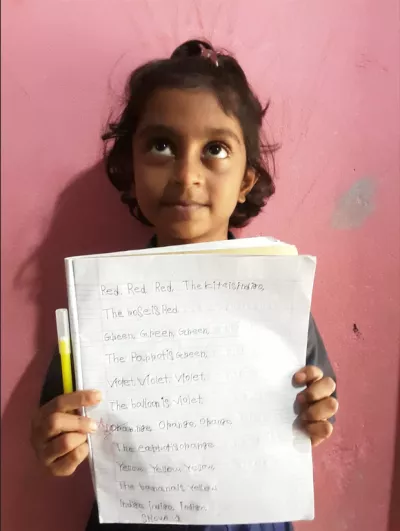 Red, Red, Red, The kite is Indigo,
The rose is Red.
Green, Green, Green
The Parrot is Green,
Violet, Violet, Violet.
The balloon is Violet.
Orange, Orange, Orange
The carrot is orange
Yellow Yellow Yellow,
The banana is Yellow.
Indigo, Indigo, Indigo